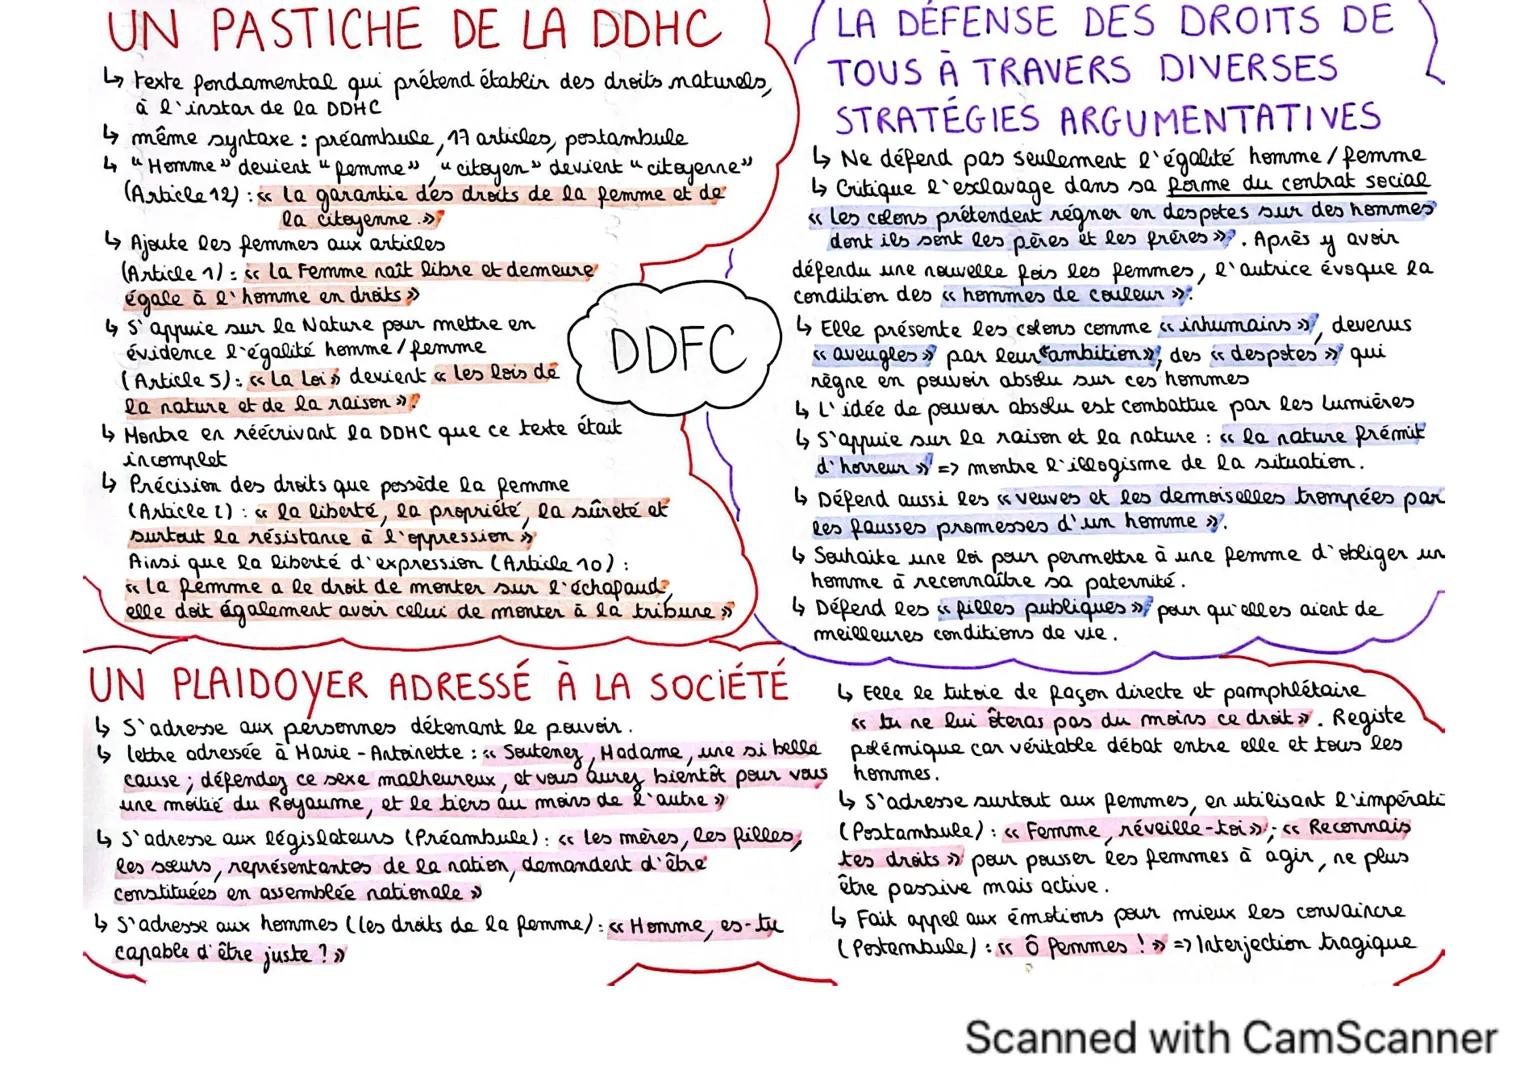 UN PASTICHE DE LA DDHC
↳ texte fondamental qui prétend établir des droits naturels,
à l'instar de la DDHC
↳ même syntaxe : préambule, 17 articles, postambule
↳ "Homme" devient "femme", "citoyen" devient "citoyenne"
(Article 12) : « La garantie des droits de la femme et de
la citoyenne. »
↳ Ajoute les femmes aux articles
(Article 1) : « La Femme naît libre et demeure
égale à l'homme en droits »
↳ S'appuie sur la Nature pour mettre en
évidence l'égalité homme/femme
(Article 5) : « La Loi » devient « les lois de
la nature et de la raison ».
↳ Montre en réécrivant la DDHC que ce texte était
incomplet
↳ Précision des droits que possède la femme
(Article 2) : « la liberté, la propriété, la sûreté et
surtout la résistance à l'oppression »
Ainsi que la liberté d'expression (Article 10) :
« La femme a le droit de monter sur l'échafaud,
elle doit également avoir celui de monter à la tribune »
DDFC
LA DÉFENSE DES DROITS DE
TOUS À TRAVERS DIVERSES
STRATÉGIES ARGUMENTATIVES
↳ Ne défend pas seulement l'égalité homme/femme
↳ Critique l'esclavage dans sa forme du contrat social
« Les colons prétendent régner en despotes sur des hommes
dont ils sont les pères et les frères ». Après y avoir
défendu une nouvelle fois les femmes, l'autrice évoque la
condition des « hommes de couleur ».
↳ Elle présente les colons comme « inhumains », devenus
« aveugles » par leur « ambition », des « despotes » qui
règne en pouvoir absolu sur ces hommes
↳ L'idée de pouvoir absolu est combattue par les Lumières
↳ S'appuie sur la raison et la nature : « la nature frémit
d'horreur » => montre l'illogisme de la situation.
↳ Défend aussi les « veuves et les demoiselles trompées par
les fausses promesses d'un homme ».
↳ Souhaite une loi pour permettre à une femme d'obliger un
homme à reconnaître sa paternité.
↳ Défend les « filles publiques », pour qu'elles aient de
meilleures conditions de vie.
UN PLAIDOYER ADRESSÉ À LA SOCIÉTÉ
↳ S'adresse aux personnes détenant le pouvoir.
↳ lettre adressée à Marie-Antoinette : « Soutenez, Madame, une si belle
cause ; défendez ce sexe malheureux, et vous aurez bientôt pour vous
une moitié du Royaume, et le tiers au moins de l'autre »
↳ S'adresse aux législateurs (Préambule) : « Les mères, les filles,
les sœurs, représentantes de la nation, demandent d'être
constituées en assemblée nationale »
↳ S'adresse aux hommes (les droits de la femme) : « Homme, es-tu
capable d'être juste ? »
↳ Elle le tutoie de façon directe et pamphlétaire
« tu ne lui ôteras pas du moins ce droit ». Registe
polémique car véritable débat entre elle et tous les
hommes.
↳ S'adresse surtout aux femmes, en utilisant l'impérati
(Postambule) : « Femme, réveille-toi » ; « Reconnais
tes droits » pour pousser les femmes à agir, ne plus
être passive mais active.
↳ Fait appel aux émotions pour mieux les convaincre
(Postambule) : « Ô femmes ! » => Interjection tragique
Scanned with CamScanner